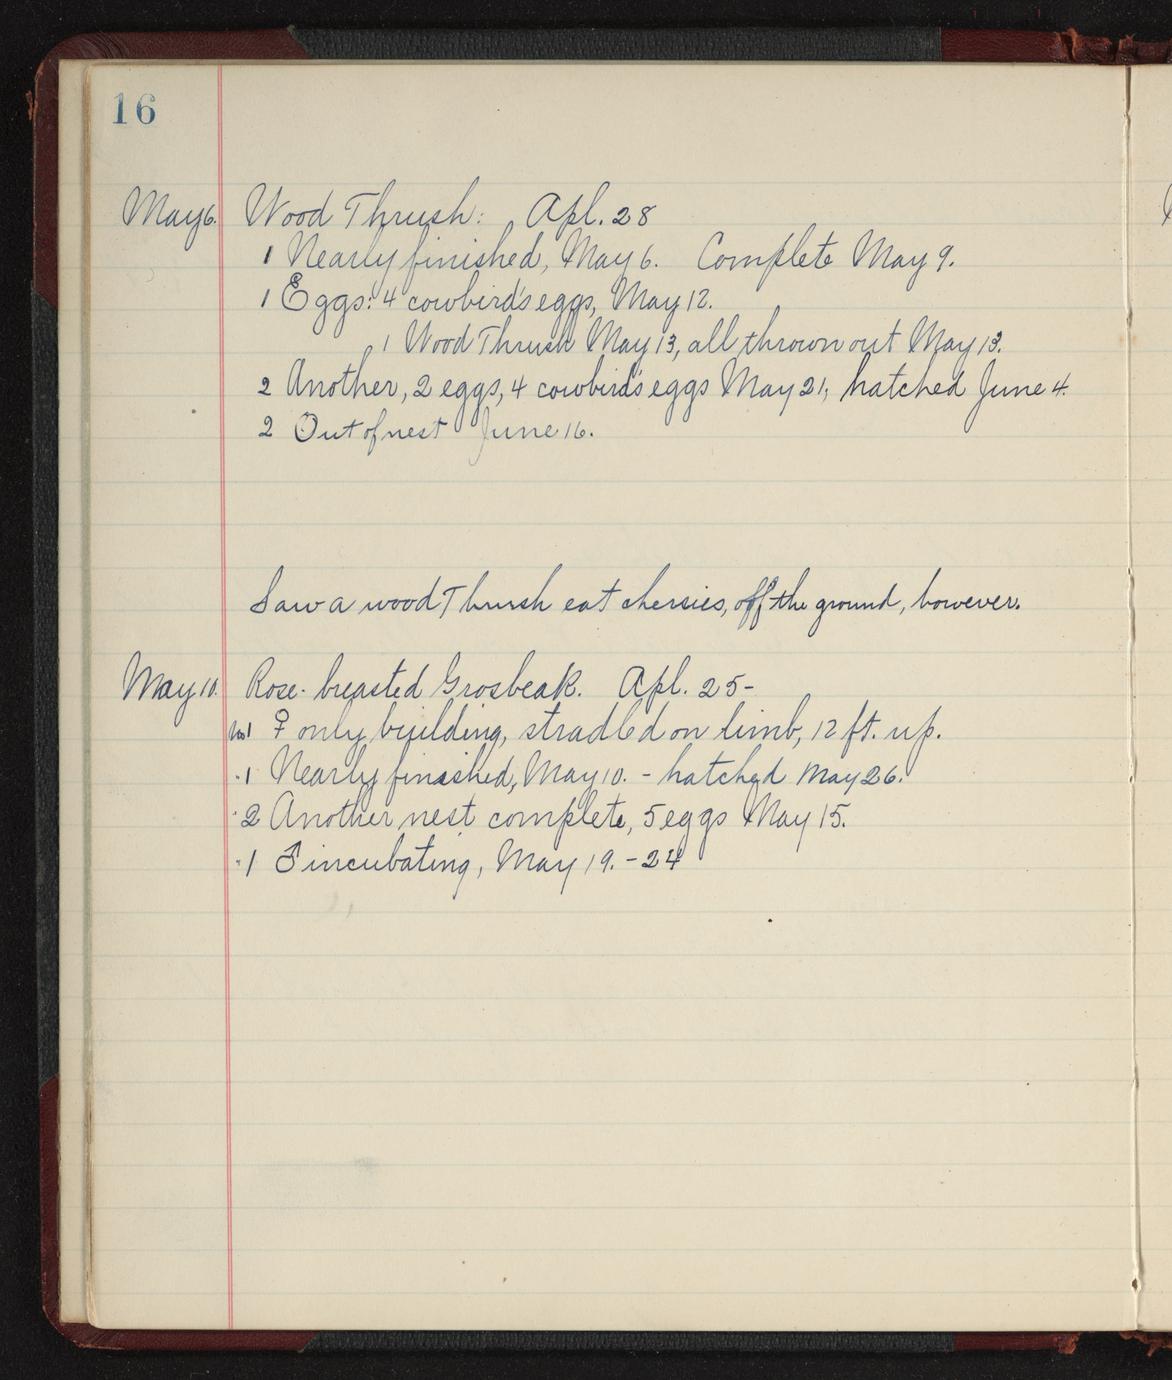 16
May 6. Wood Thrush: Apl. 28
1 Nearly finished, May 6. Complete May 9.
1 Eggs: 4 cowbird's eggs, May 12.
1 Wood Thrush May 13, all thrown out May 13.
2 Another, 2 eggs, 4 cowbird's eggs May 21, hatched June 4.
2 Out of nest June 16.
Saw a wood Thrush eat cherries, off the ground, however.
May 10. Rose-breasted Grosbeak. Apl. 25-
♀ only building, stradled on limb, 12 ft. up.
1 Nearly finished, May 10. - hatched May 26.
2 Another nest complete, 5 eggs May 15.
1 incubating, May 19. - 24